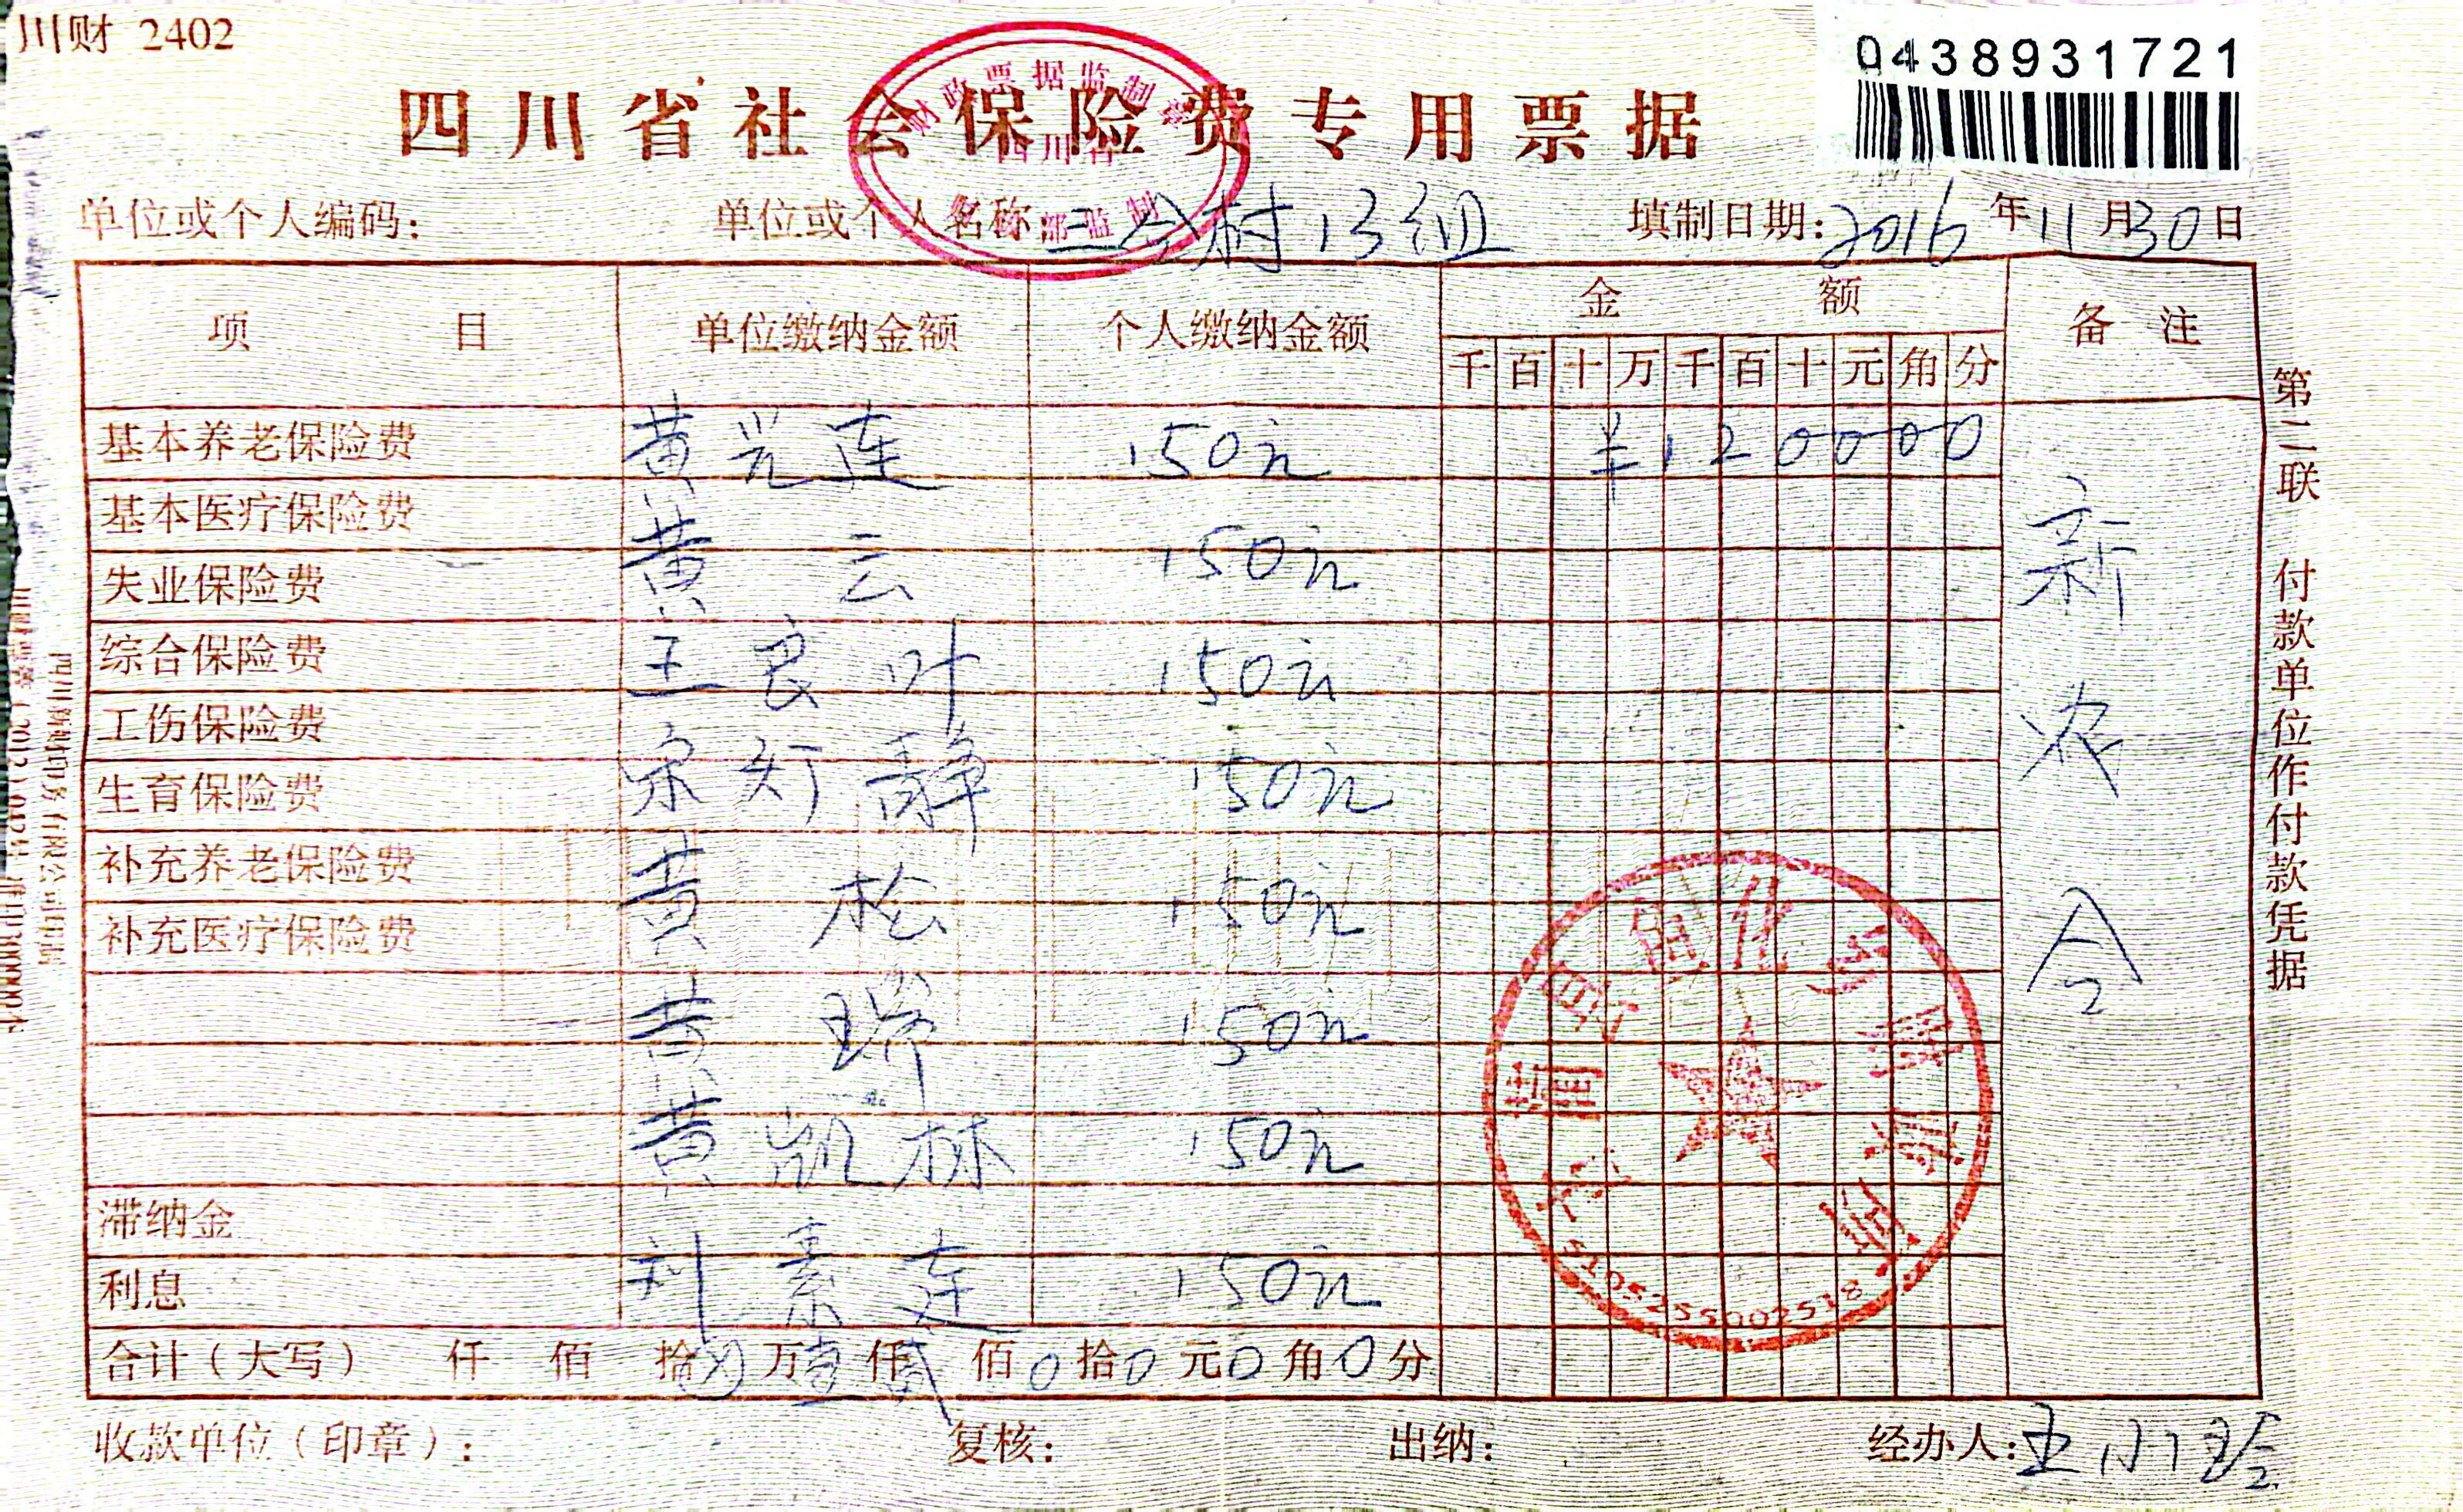 川财 2402
0438931721
四川省社会保险费专用票据
单位或个人编码: 单位或个人名称 三会村13组 填制日期: 2016年11月30日
项 目 单位缴纳金额 个人缴纳金额 金 额 备 注
千 百 十 万 千 百 十 元 角 分
基本养老保险费 黄兴连 150元 ¥120000
基本医疗保险费
黄云 150元
失业保险费
综合保险费 王良叶 150元
工伤保险费
宋灯静 150元
生育保险费
补充养老保险费
黄松 150元
补充医疗保险费
黄瑞 150元
黄凯林 150元
滞纳金
利息 刘素连 150元
新农合
合计(大写) 仟 佰 拾 万壹仟贰佰0拾0元0角0分
收款单位(印章): 复核: 出纳: 经办人: 王小
第二联 付款单位作付款凭据
5105255002518